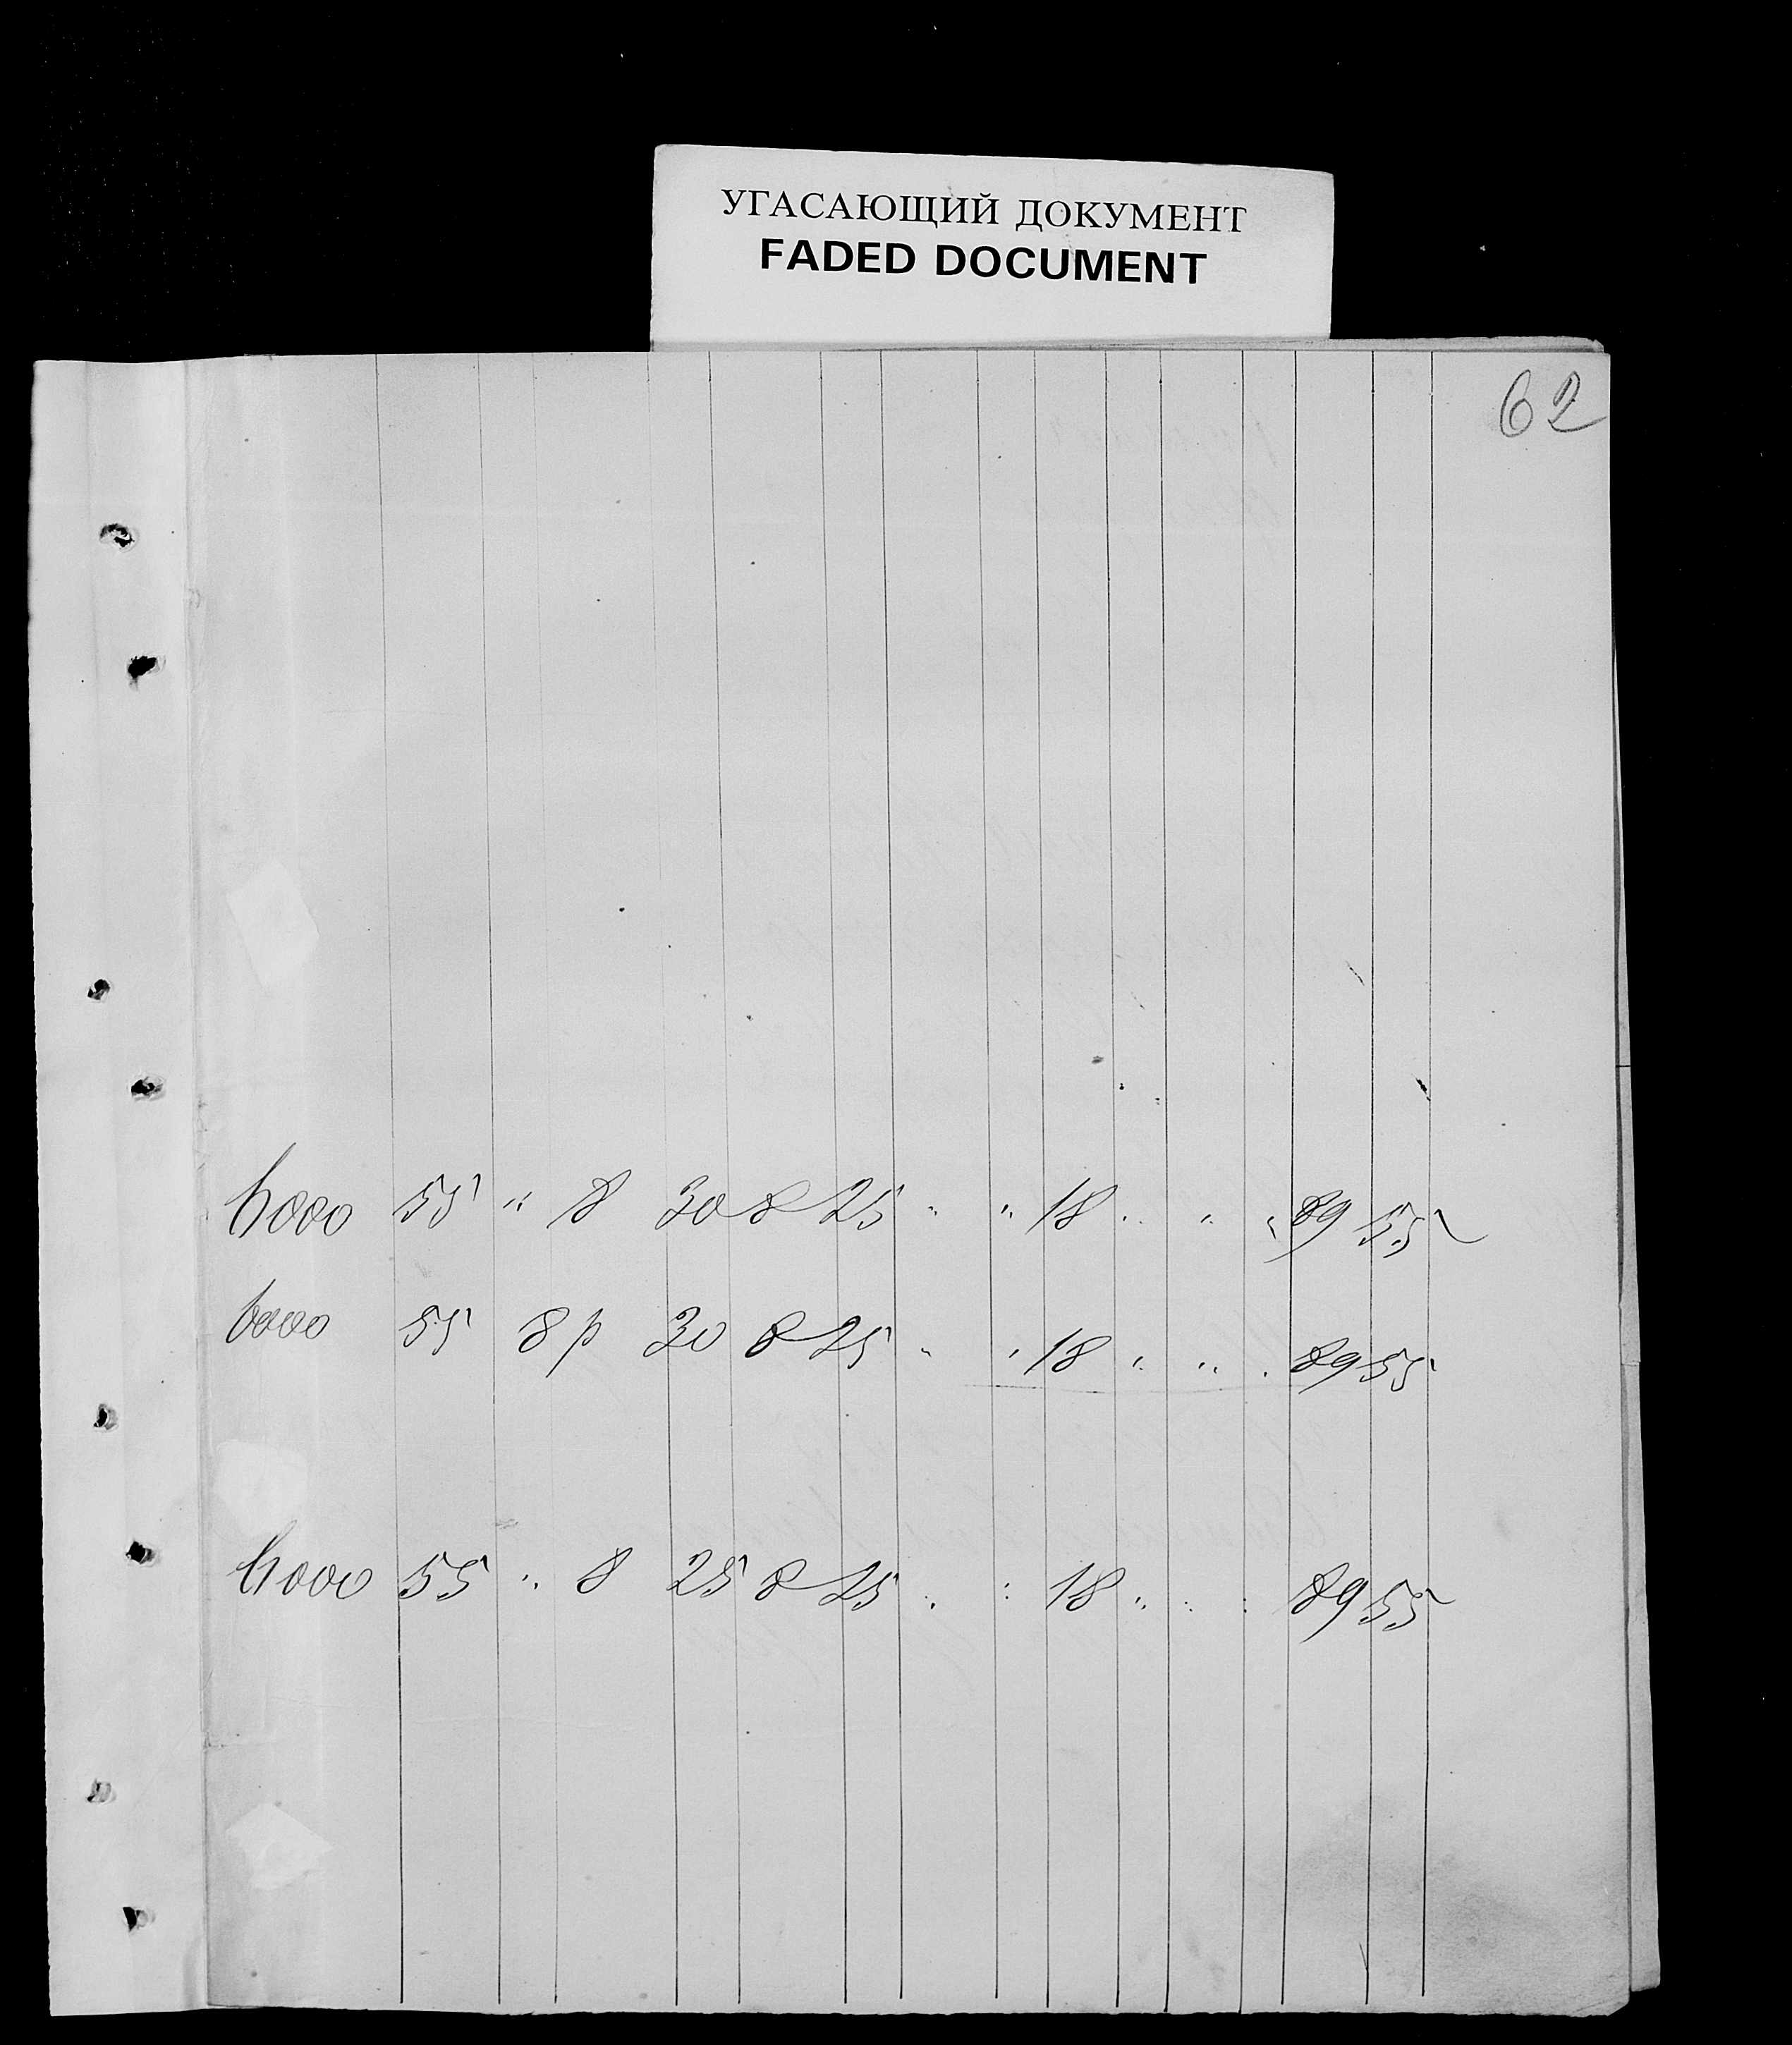 УГАСАЮЩИЙ ДОКУМЕНТ
FADED DOCUMENT
62
6000 55 " 8 30 8 25 " " 18 " " " 89 55
6000 55 8 р 30 8 25 " " 18 " " " 89 55
6000 55 " 8 25 8 25 " " 18 " " " 89 55